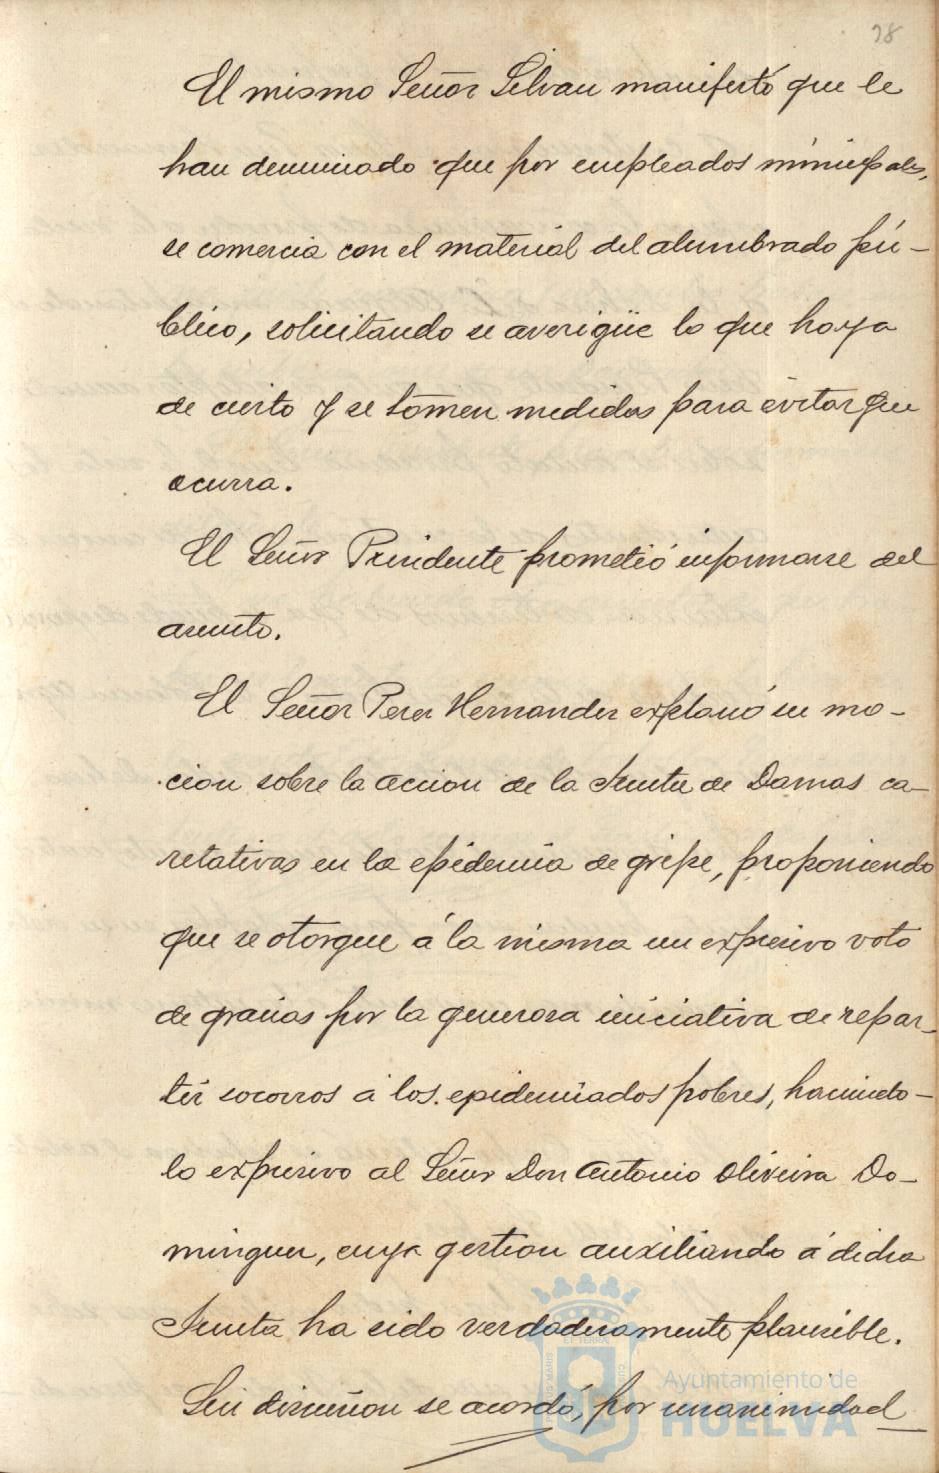 98
El mismo Señor Silvan manifestó que le
han denunciado que por empleados municipales,
se comercia con el material del alumbrado pú-
blico, solicitando se averigüe lo que haya
de cierto y se tomen medidas para evitar que
ocurra.
El Señor Presidente prometió informarse del
asunto.
El Señor Perez Hernandez explanó su mo-
cion sobre la accion de la Junta de Damas ca-
retativas en la epidemia de gripe, proponiendo
que se otorgue á la misma un expresivo voto
de gracias por la generosa iniciativa de repar-
tir socorros á los epidemiados pobres, haciendo-
lo expresivo al Señor Don Antonio Oliveira Do-
minguez, cuya gestion auxiliando á dicha
Junta ha sido verdaderamente plausible.
Sin discusion se acordó, por unanimidad
Ayuntamiento de
HUELVA